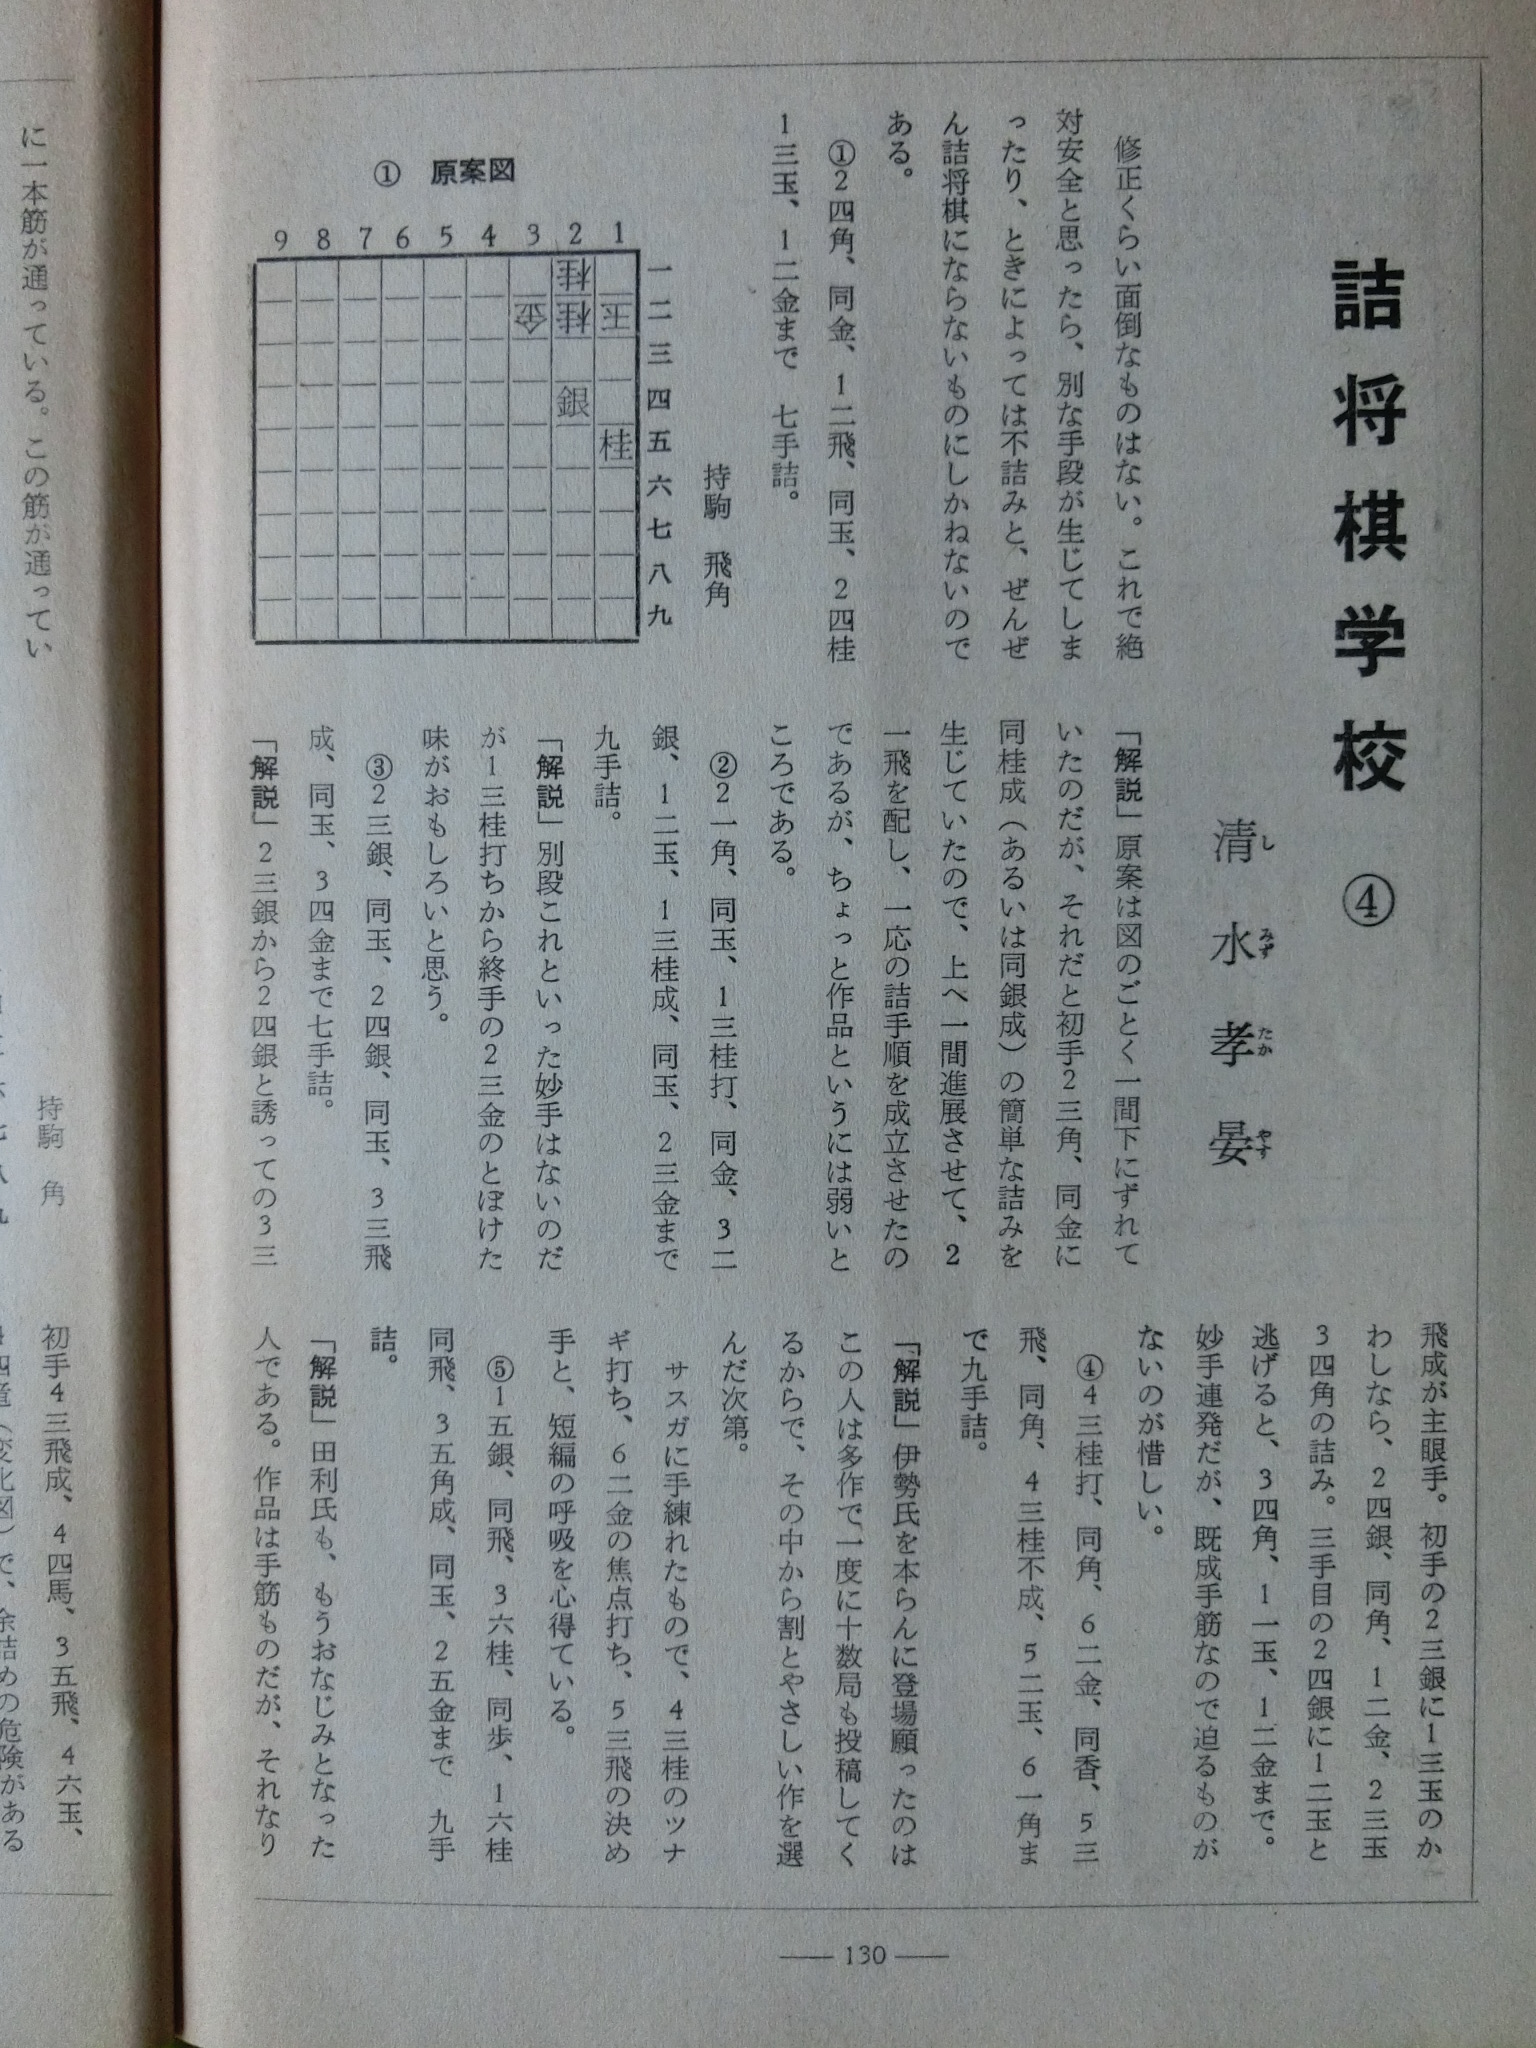 詰将棋学校 ④
清水孝晏
し みず たか やす
修正くらい面倒なものはない。これで絶
対安全と思ったら、別な手段が生じてしま
ったり、ときによっては不詰みと、ぜんぜ
ん詰将棋にならないものにしかねないので
ある。
①2四角、同金、1二飛、同玉、2四桂
1三玉、1二金まで 七手詰。
① 原案図
9 8 7 6 5 4 3 2 1
一
二
三
四
五
六
七
八
九
桂
金 桂 玉
銀
桂
持駒 飛角
「解説」原案は図のごとく一間下にずれて
いたのだが、それだと初手2三角、同金に
同桂成（あるいは同銀成）の簡単な詰みを
生じていたので、上へ一間進展させて、2
一飛を配し、一応の詰手順を成立させたの
であるが、ちょっと作品というには弱いと
ころである。
②2一角、同玉、1三桂打、同金、3二
銀、1二玉、1三桂成、同玉、2三金まで
九手詰。
「解説」別段これといった妙手はないのだ
が1三桂打ちから終手の2三金のとぼけた
味がおもしろいと思う。
③2三銀、同玉、2四銀、同玉、3三飛
成、同玉、3四金まで七手詰。
「解説」2三銀から2四銀と誘っての3三
飛成が主眼手。初手の2三銀に1三玉のか
わしなら、2四銀、同角、1二金、2三玉
3四角の詰み。三手目の2四銀に1二玉と
逃げると、3四角、1一玉、1二金まで。
妙手連発だが、既成手筋なので迫るものが
ないのが惜しい。
④4三桂打、同角、6二金、同香、5三
飛、同角、4三桂不成、5二玉、6一角ま
で九手詰。
「解説」伊勢氏を本らんに登場願ったのは
この人は多作で一度に十数局も投稿してく
るからで、その中から割とやさしい作を選
んだ次第。
サスガに手練れたもので、4三桂のツナ
ギ打ち、6二金の焦点打ち、5三飛の決め
手と、短編の呼吸を心得ている。
⑤1五銀、同飛、3六桂、同歩、1六桂
同飛、3五角成、同玉、2五金まで 九手
詰。
「解説」田利氏も、もうおなじみとなった
人である。作品は手筋ものだが、それなり
— 130 —
に一本筋が通っている。この筋が通ってい
持駒 角
初手4三飛成、4四馬、3五飛、4六玉、